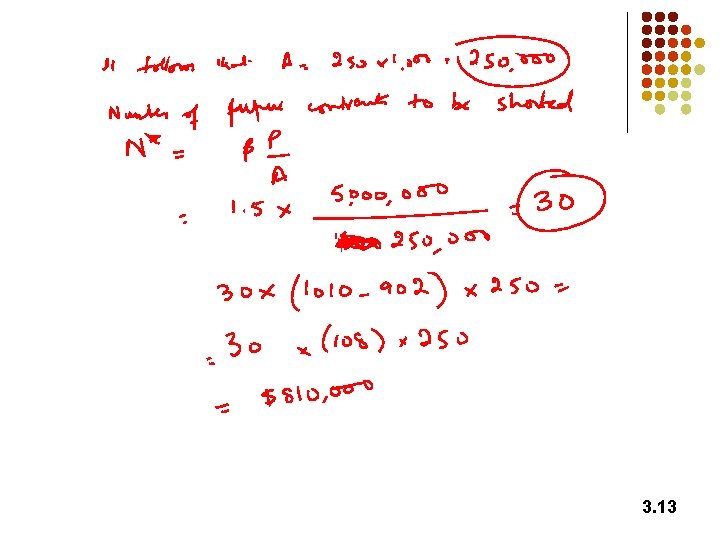 It follows that A = 250 x 1,000 = 250,000
Number of future contracts to be shorted
N* = β P/A
= 1.5 x 5,000,000 / 250,000 = 30
30 x (1010 - 902) x 250 =
= 30 x (108) x 250
= $810,000
3.13